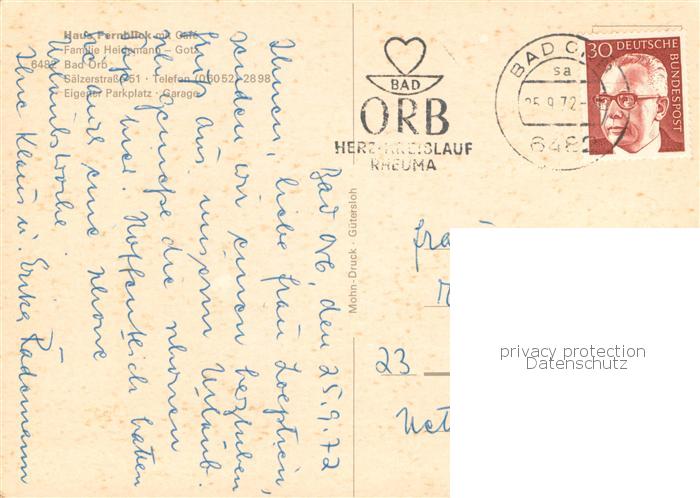 Haus Fernblick mit Café
Familie Heidemann - Gotz
6482 Bad Orb
Sälzerstraße 51 · Telefon (06052) 2898
Eigener Parkplatz · Garage
BAD
ORB
HERZ-KREISLAUF
RHEUMA
BAD
sa
25.9.72
6482
30 DEUTSCHE
BUNDESPOST
Mohn-Druck · Gütersloh
Bad Orb, den 25.9.72
Ihnen, liebe Frau
senden wir einen herzlichen
Gruß aus unserm Urlaub.
Wir genießen die schönen
Tage hier. Hoffentlich hatten
Sie auch eine schöne
Urlaubswoche.
Ihre Klaus u. Erika Radomann
Frau
23
privacy protection
Datenschutz